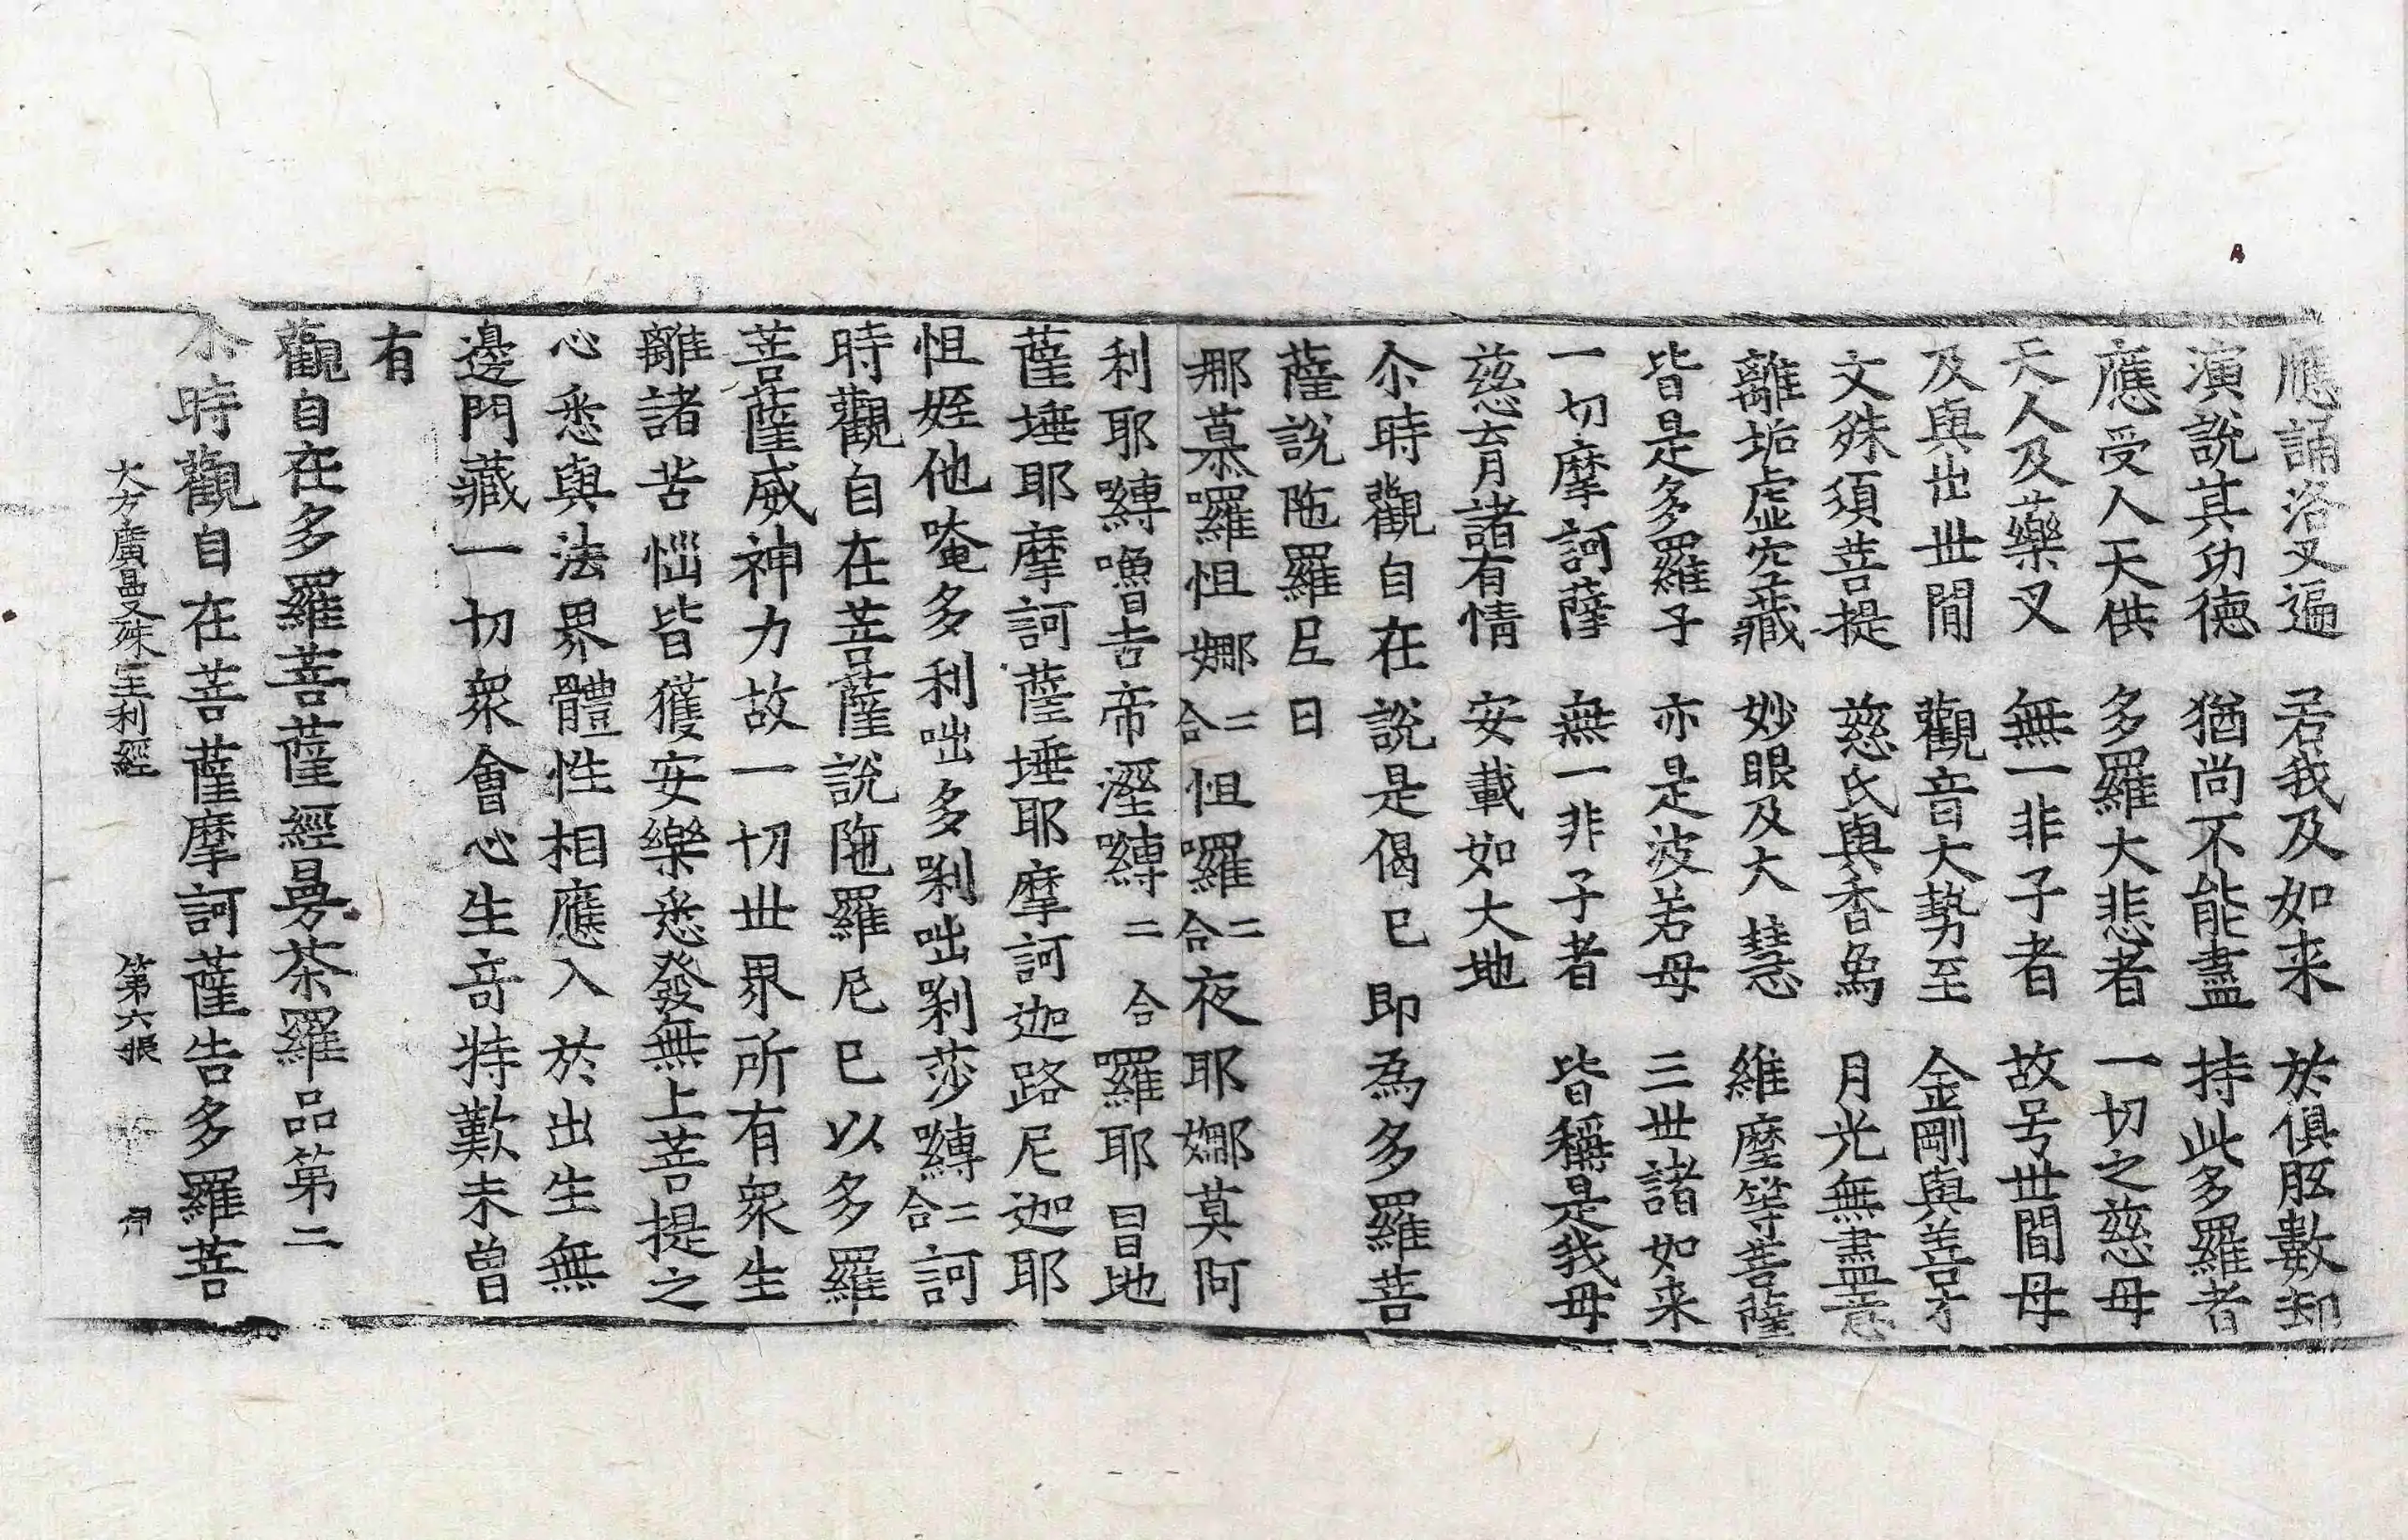 應誦洛叉遍　若我及如来　於俱胝數刧
演說其功德　猶尚不能盡　持此多羅者
應受人天供　多羅大悲者　一切之慈母
天人及藥叉　無一非子者　故号世間母
及與出世間　觀音大勢至　金剛與善才
文殊須菩提　慈氏與香象　月光無盡意
離垢虛空藏　妙眼及大慧　維摩等菩薩
皆是多羅子　亦是波若母　三世諸如来
一切摩訶薩　無一非子者　皆稱是我母
慈育諸有情　安載如大地
尒時觀自在說是偈已即為多羅菩
薩說陁羅尼曰
那慕囉怛娜二合怛囉二合夜耶娜莫阿
利耶嚩嚕吉帝溼嚩二合囉耶冒地
薩埵耶摩訶薩埵耶摩訶迦路尼迦耶
怛姪他唵多利咄多唎咄唎莎嚩二合訶
時觀自在菩薩說陁羅尼已以多羅
菩薩威神力故一切世界所有衆生
離諸苦惱皆獲安樂悉發無上菩提之
心悉與法界體性相應入於出生無
邊門藏一切衆會心生竒特歎未曾
有
觀自在多羅菩薩經曼荼羅品第二
尒時觀自在菩薩摩訶薩告多羅菩
大方廣曼殊室利經　第六張